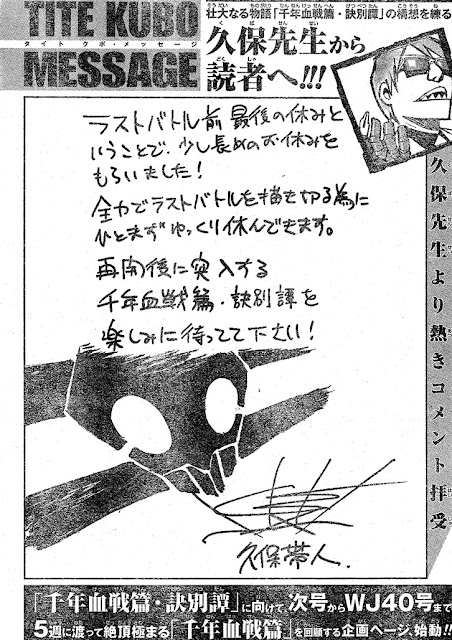 TITE KUBO
タイト クボ・メッセージ
MESSAGE
壮大なる物語「千年血戦篇・訣別譚」の構想を練る
そうだい ものがたり せんねんけっせんへん けつべつたん こうそう ね
久保先生から
く ぼ せんせい
読者へ!!!
どくしゃ
ラストバトル前 最後の休みと
いうことで、少し長めのお休みを
もらいました!
全力でラストバトルを描き切る為に
ひとまずゆっくり休んできます。
再開後に突入する
千年血戦篇・訣別譚を
楽しみに待ってて下さい!
久保帯人.
久保先生より熱きコメント拝受
「千年血戦篇・訣別譚」に向けて 次号からWJ40号まで
5週に渡って絶頂極まる「千年血戦篇」を回顧する企画ページ、始動!!